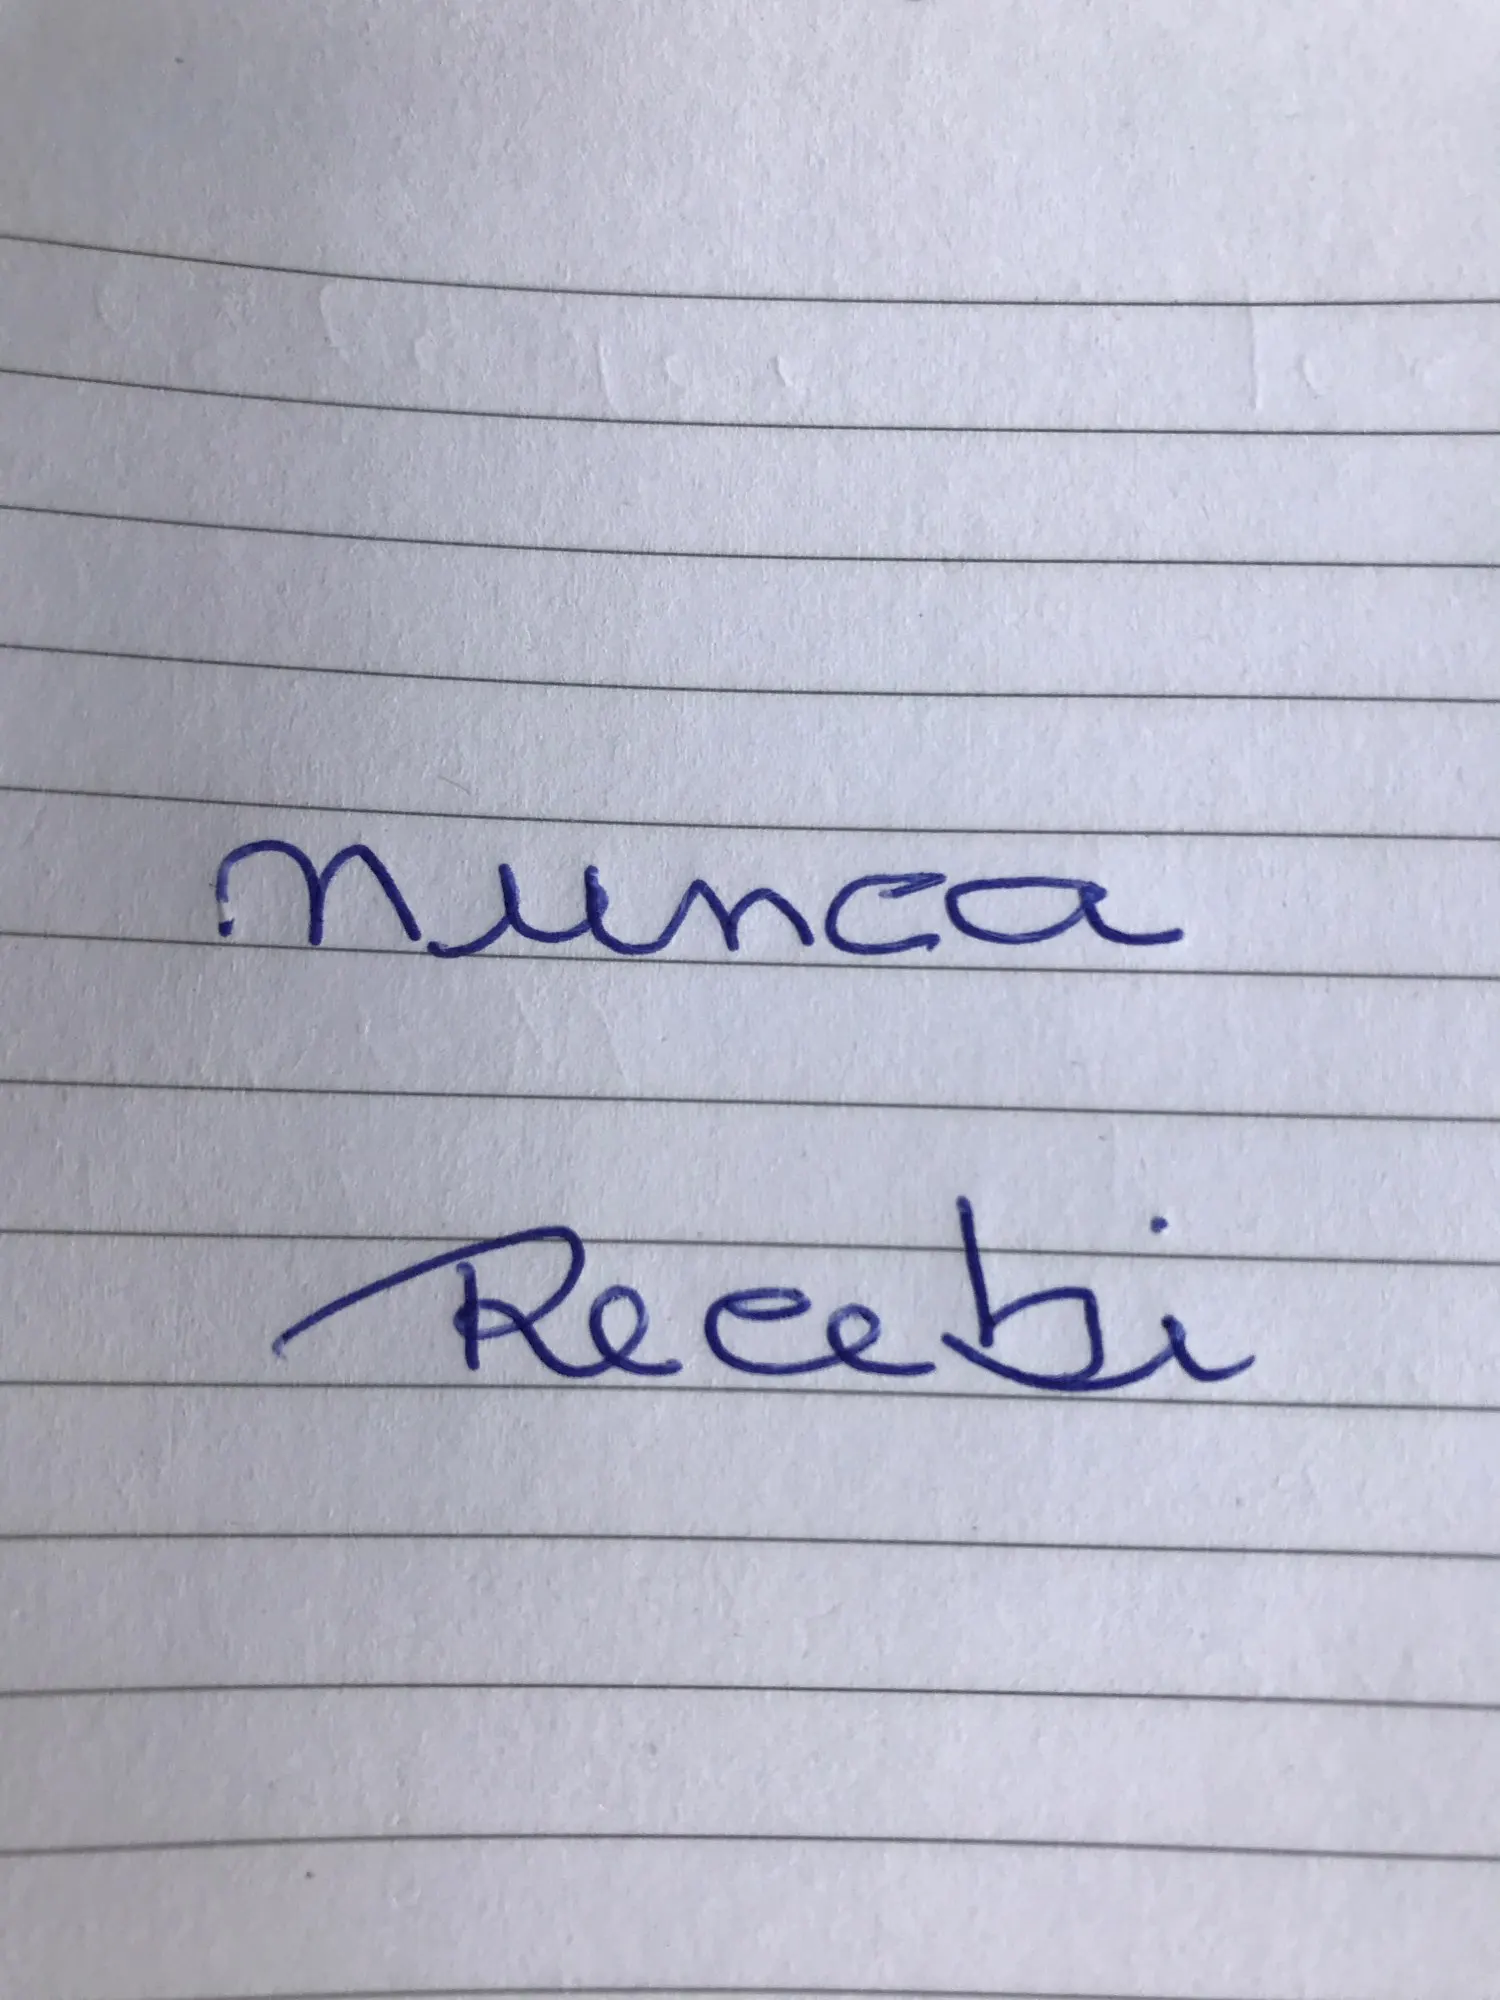 nunca
Recebi